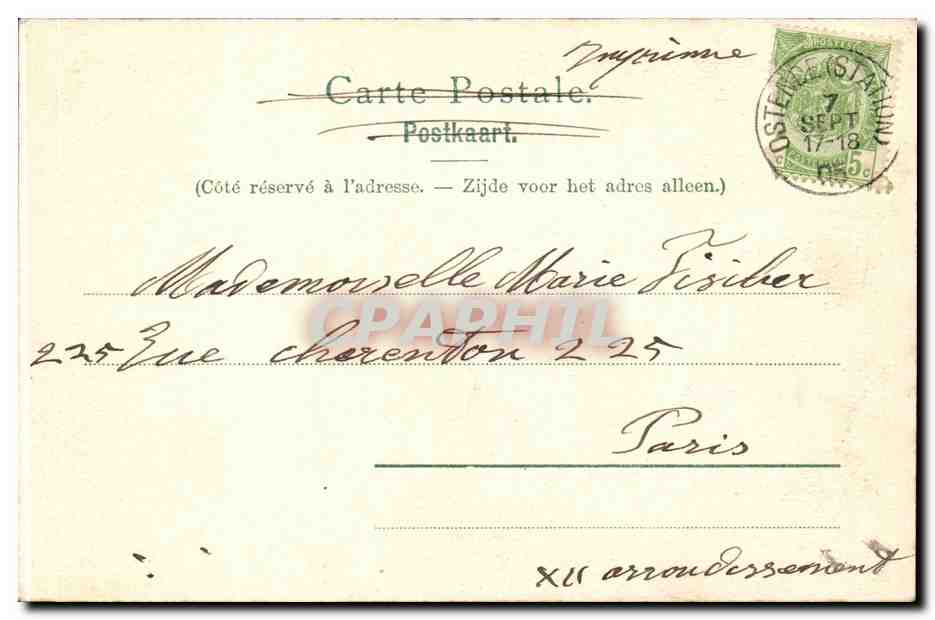 Imprimé
Carte Postale.
Postkaart.
(Côté réservé à l'adresse. — Zijde voor het adres alleen.)
POSTES
OSTENDE (STATION)
7
SEPT
17-18
05
5c
Mademoiselle Marie Fisiber
CPAPHIL
225 Rue charenton 225
Paris
XII arrondissement